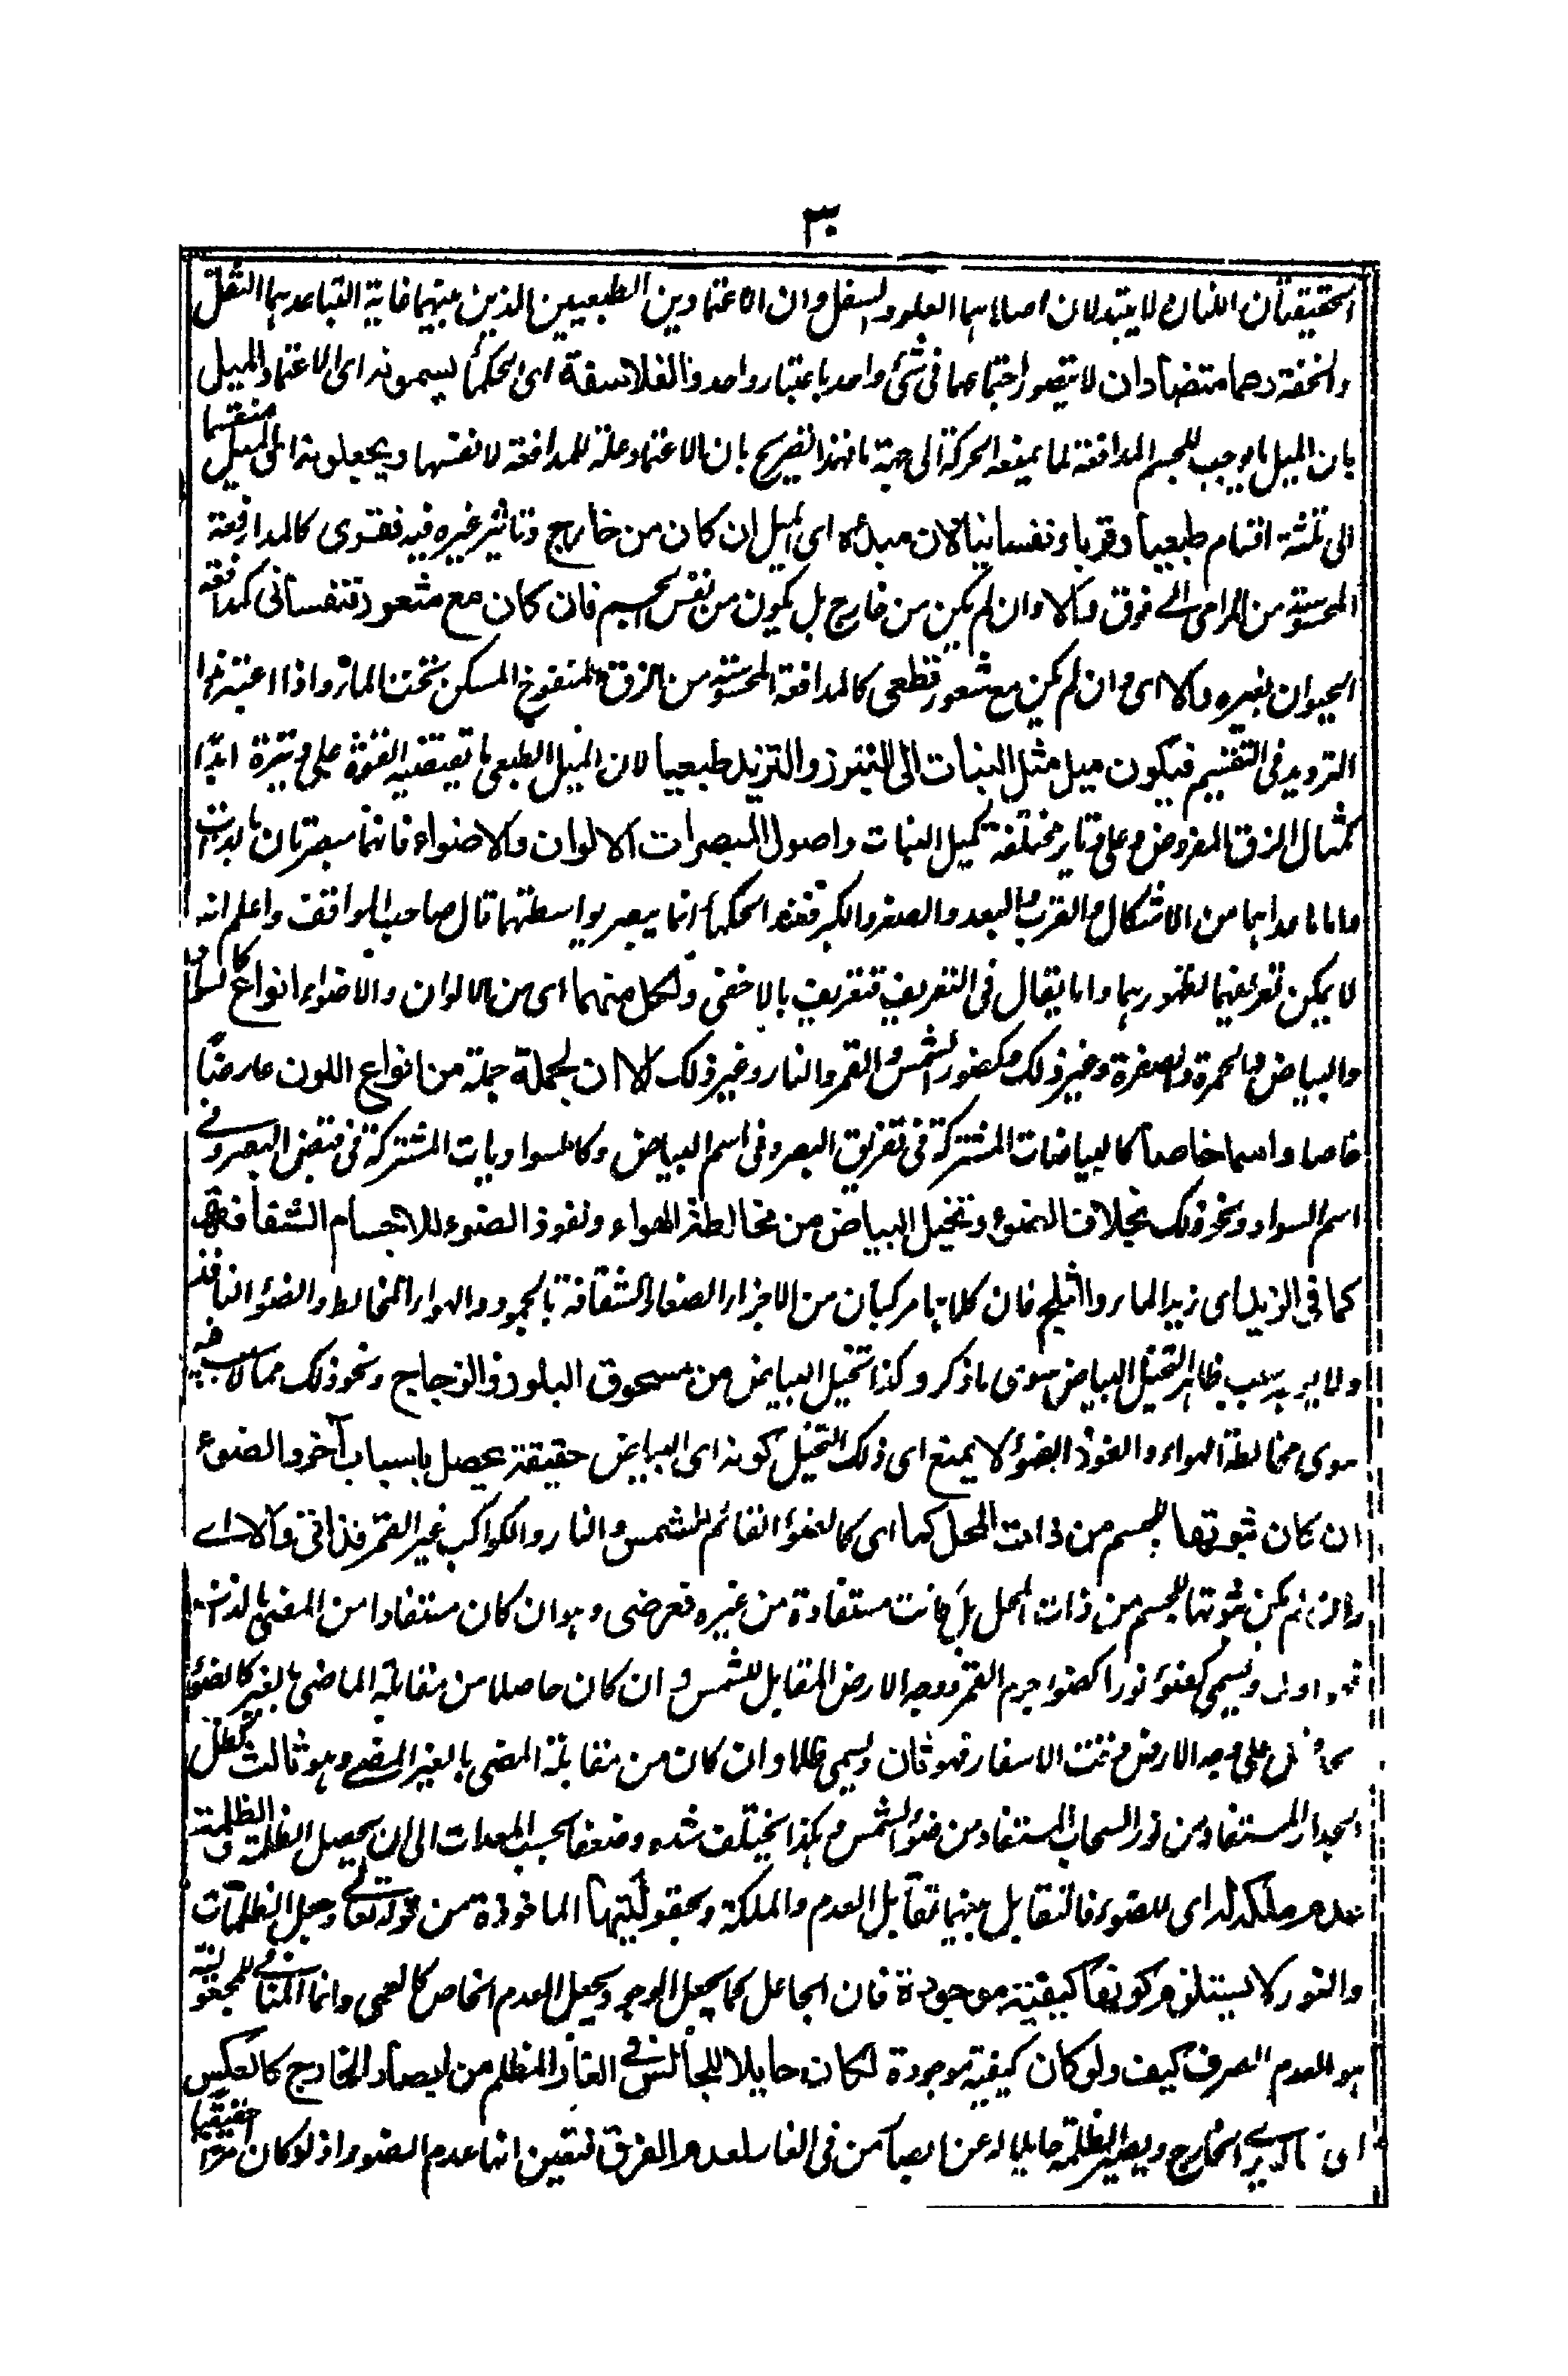 ٣٠
الحقيقتان اللتان لا يتبدلان اصلا هما العلو والسفل وان الاعتمادين الطبعيين الذين بينهما غاية التباعد هما الثقل
والخفة وهما متضادان لا يتصور اجتماعهما فى شئ واحد باعتبار واحد والفلاسفة اى الحكماء يسمونه اى الاعتماد الميل
بان الميل ما يوجب للجسم المدافعة لما يمنعه الحركة الى جهة ما فهذا تصريح بان الاعتماد علة للمدافعة لا نفسها ويجعلونه اى الميل منقسما
الى ثلثة اقسام طبعيا وقسريا ونفسانيا لان مبدأه اى الميل ان كان من خارج وتاثير غيره فيه فقسرى كالمدافعة
المحسوسة من المرامى الى فوق والا وان لم يكن من خارج بل يكون من نفس الجسم فان كان مع شعور فنفسانى كمدافعة
الحيوان بغيره والا اى وان لم يكن مع شعور فطبعى كالمدافعة المحسوسة من الزق المنفوخ المسكن تحت الماء واذا اعتبر هذا
الترديد فى التقسيم فيكون ميل مثل النبات الى التبرز والتزيد طبعيا لان الميل الطبعى ما تقتضيه القوة على وتيرة ابدا
كمثال الزق المفروض وعلى وتاير مختلفة كميل النبات واصول المبصرات الالوان والاضواء فانهما مبصرتان بالذات
واما ما عداهما من الاشكال والقرب والبعد والصغر والكبر فعند الحكماء انما يبصر بواسطتهما قال صاحب المواقف واعلم انه
لا يمكن تعريفهما لظهورهما وما يقال فى التعريف فتعريف بالاخفى ولكل منهما اى من الالوان والاضواء انواع كالسواد
والبياض والحمرة والصفرة وغير ذلك وكضوء الشمس والقمر والنار وغير ذلك الا ان لجملة جملة من انواع اللون عارضا
خاصا واسما خاصا كالبياضات المشتركة فى تفريق البصر وفى اسم البياض وكالسواديات المشتركة فى قبض البصر وفى
اسم السواد ونحو ذلك بخلاف الضوء وتخيل البياض من مخالطة الهواء ونفوذ الضوء للاجسام الشفافة
كما فى الزبد اى زبد الماء والثلج فان كلاهما مركبان من الاجزاء الصغار الشفافة بالجمود والهواء المخالط والضوء النافذ فيه
ولا يريد بسبب ظاهر لتخيل البياض سوى ما ذكر وكذا تخيل البياض من مسحوق البلور والزجاج ونحو ذلك مما لا سبب فيه
سوى مخالطة الهواء والنفوذ الضوء لا يمنع اى ذلك التخيل كونه اى البياض حقيقة يحصل باسباب آخر والضوء
ان كان ثبوتها للجسم من ذات المحل كما اى كالضوء القائم للشمس والنار والكواكب غير القمر فذاتى والا اى
وان لم يكن ثبوتها للجسم من ذات المحل بل كانت مستفادة من غيره فعرضى وهو ان كان مستفادا من المضئ بالذات
فهو اول ويسمى كضوء نورا كضوء جرم القمر ووجه الارض المقابل للشمس وان كان حاصلا من مقابلة الماضى بالغير كالضوء
الحاصل على وجه الارض وقت الاسفار فهو ثان ويسمى ظلا وان كان من مقابلة المضى بالغير المضئ وهو ثالث كظل
الجدار المستفاد من نور السحاب المستفاد من ضوء الشمس وهكذا يختلف شدة وضعفا بحسب المعدات الى ان يحصل الظلمة والظلمة
عدم ملكة له اى للضوء فالتقابل بينهما تقابل العدم والملكة ومجعوليتها الماخوذة من قوله تعالى وجعل الظلمات
والنور لا يستلزم كونها كيفية موجودة فان الجاعل كما يجعل الوجود ويجعل العدم الخاص كالعمى وانما المنافى للمجعولية
هو العدم الصرف كيف ولو كان كيفية موجودة لكان حايلا للجالس فى الغار المظلم من ابصار الخارج كالعكس
اى الخارج ويصير الظلمة حايلا له عن ابصار من فى الغار لعدم الفرق فتعين انها عدم الضوء اذ لو كان حقيقيا